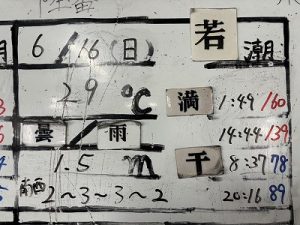 6/16(日) 若潮
29℃ 満 1:49/160
雲/雨 14:44/139
1.5m 干 8:37 78
南西 2〜3〜3〜2 20:16 89